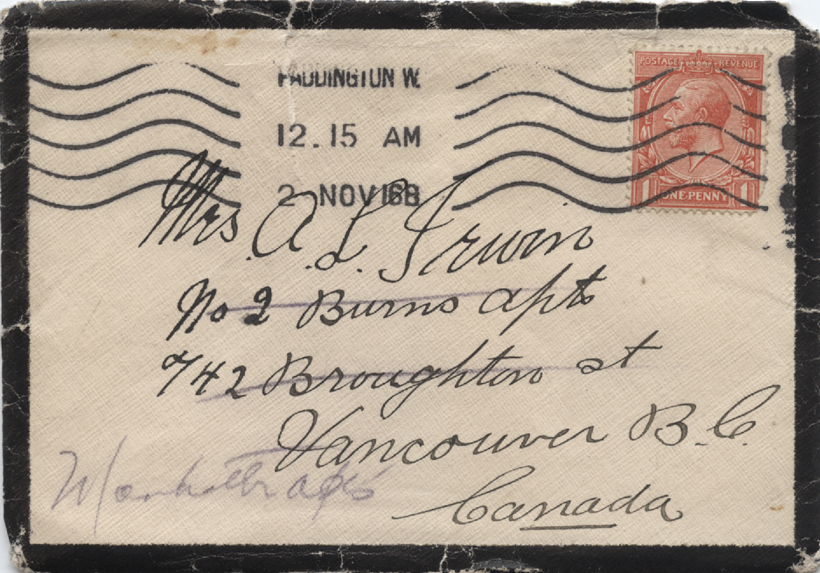 PADDINGTON W.
12.15 AM
2 NOV 16B
POSTAGE REVENUE
1 ONE·PENNY 1
Mrs A. L. Irwin
No 2 Burns apts
742 Broughton st
Vancouver B.C.
Canada
Manhattan apts